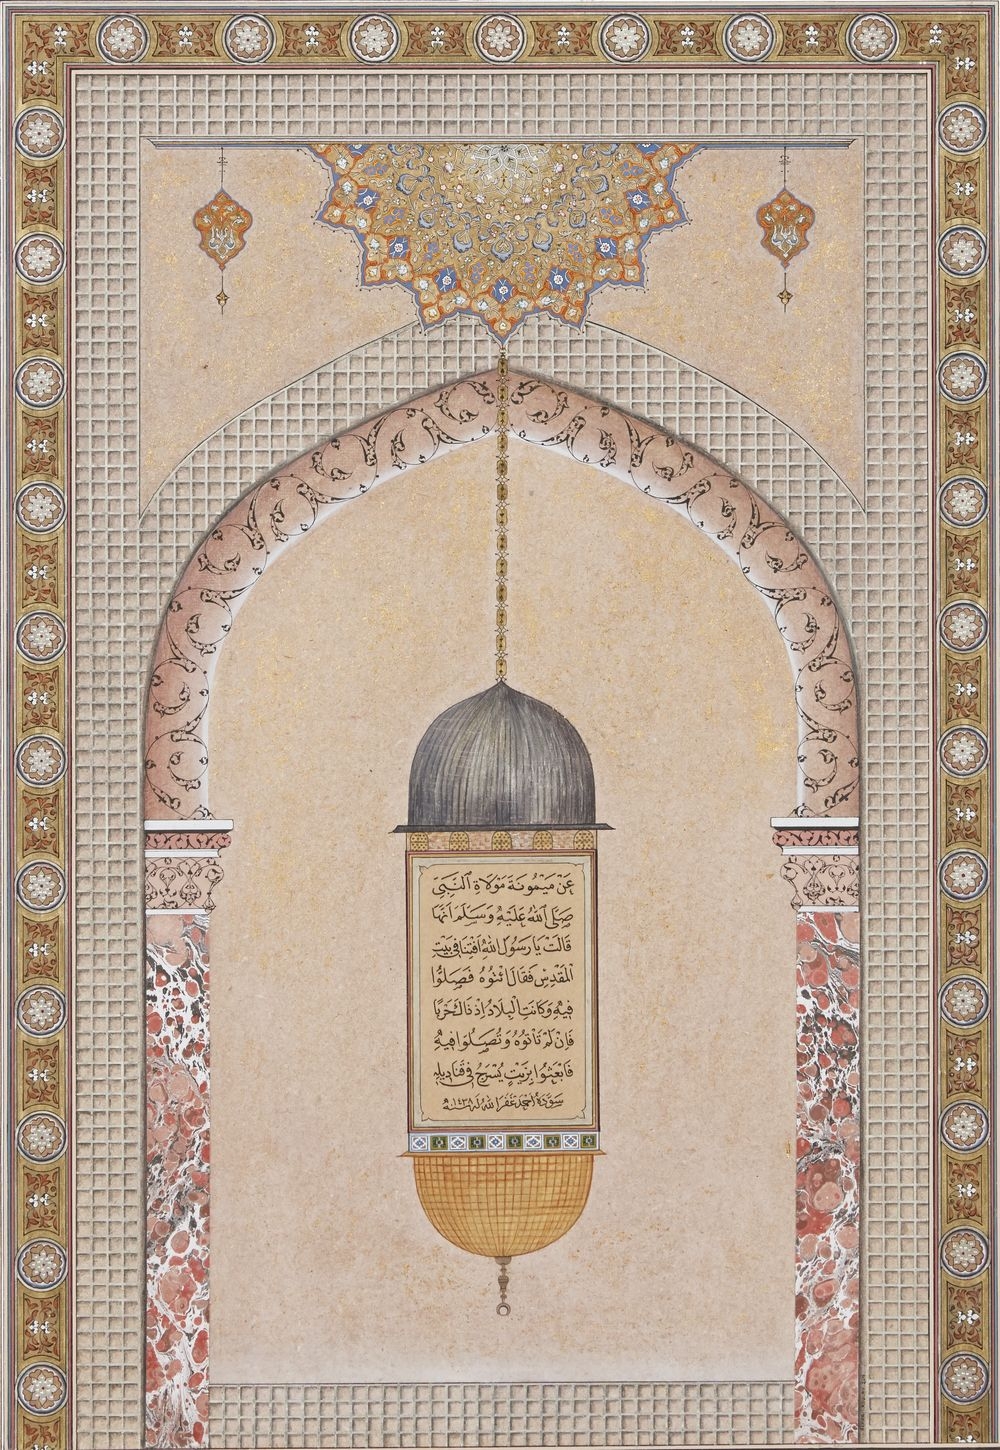 عَنْ مَيْمُونَةَ مَوْلَاةِ النَّبِيِّ
صَلَّى اللهُ عَلَيْهِ وَسَلَّمَ اَنَّهَا
قَالَتْ يَا رَسُولَ اللهِ اَفْتِنَا فِي بَيْتِ
الْمَقْدِسِ فَقَالَ ائْتُوهُ فَصَلُّوا
فِيهِ وَكَانَتِ الْبِلَادُ اِذْ ذَاكَ حَرْبًا
فَاِنْ لَمْ تَأْتُوهُ وَتُصَلُّوا فِيهِ
فَابْعَثُوا بِزَيْتٍ يُسْرَجُ فِي قَنَادِيلِهِ
سَوَّدَهُ اَمْجَد غَفَرَ اللهُ لَهُ سنة ١٤٣٨